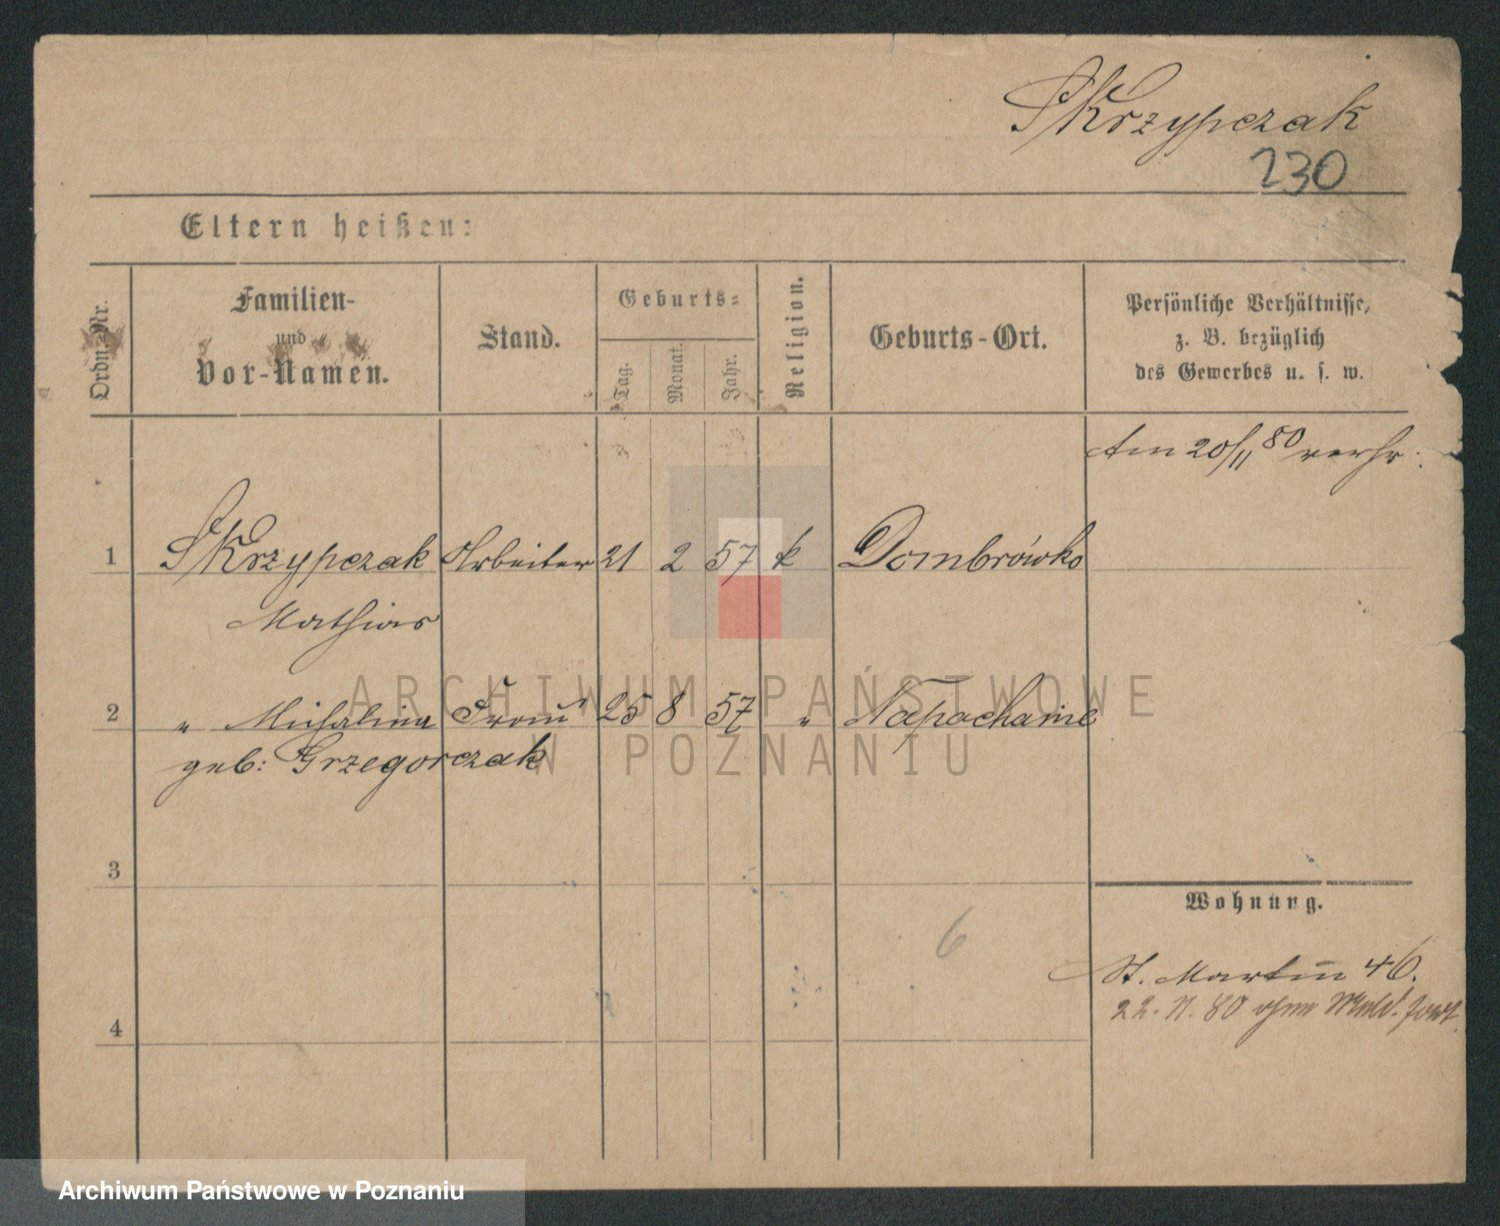 Skrzypczak
230
Eltern heißen:
Ordn.-Nr.
Familien-
und
Vor-Namen.
Stand.
Geburts-
Tag.
Monat.
Jahr.
Religion.
Geburts-Ort.
Persönliche Verhältnisse,
z. B. bezüglich
des Gewerbes u. s. w.
Am 20/11 80 verh.
1 Skrzypczak Arbeiter 21 2 57 k Dombrówko
Mathias
2 " Michalina Frau 25 8 57 " Napachanie
geb: Grzegorczak
3
Wohnung.
6
St. Martin 46.
22. 11. 80 ohne Meld. fort.
4
ARCHIWUM PAŃSTWOWE
W POZNANIU
Archiwum Państwowe w Poznaniu